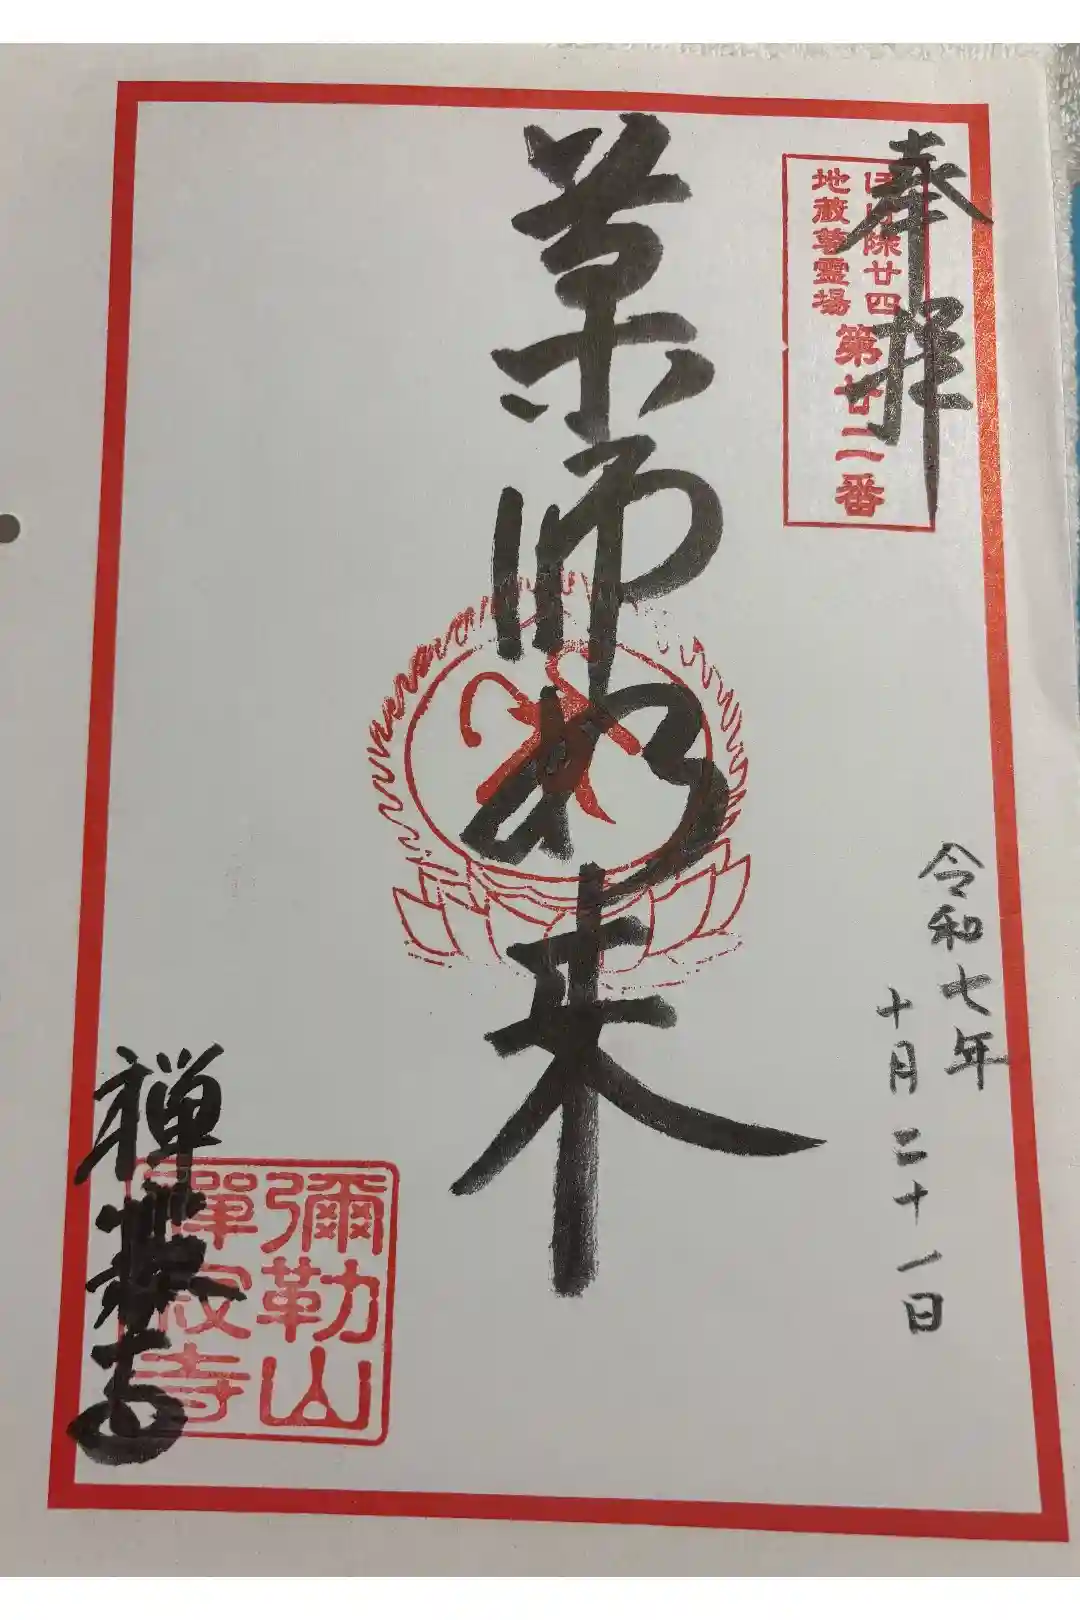 奉拝
ほけ除廿四
地蔵尊霊場
第廿二番
令和七年
十月二十一日
薬師如来
彌勒山
禅寺